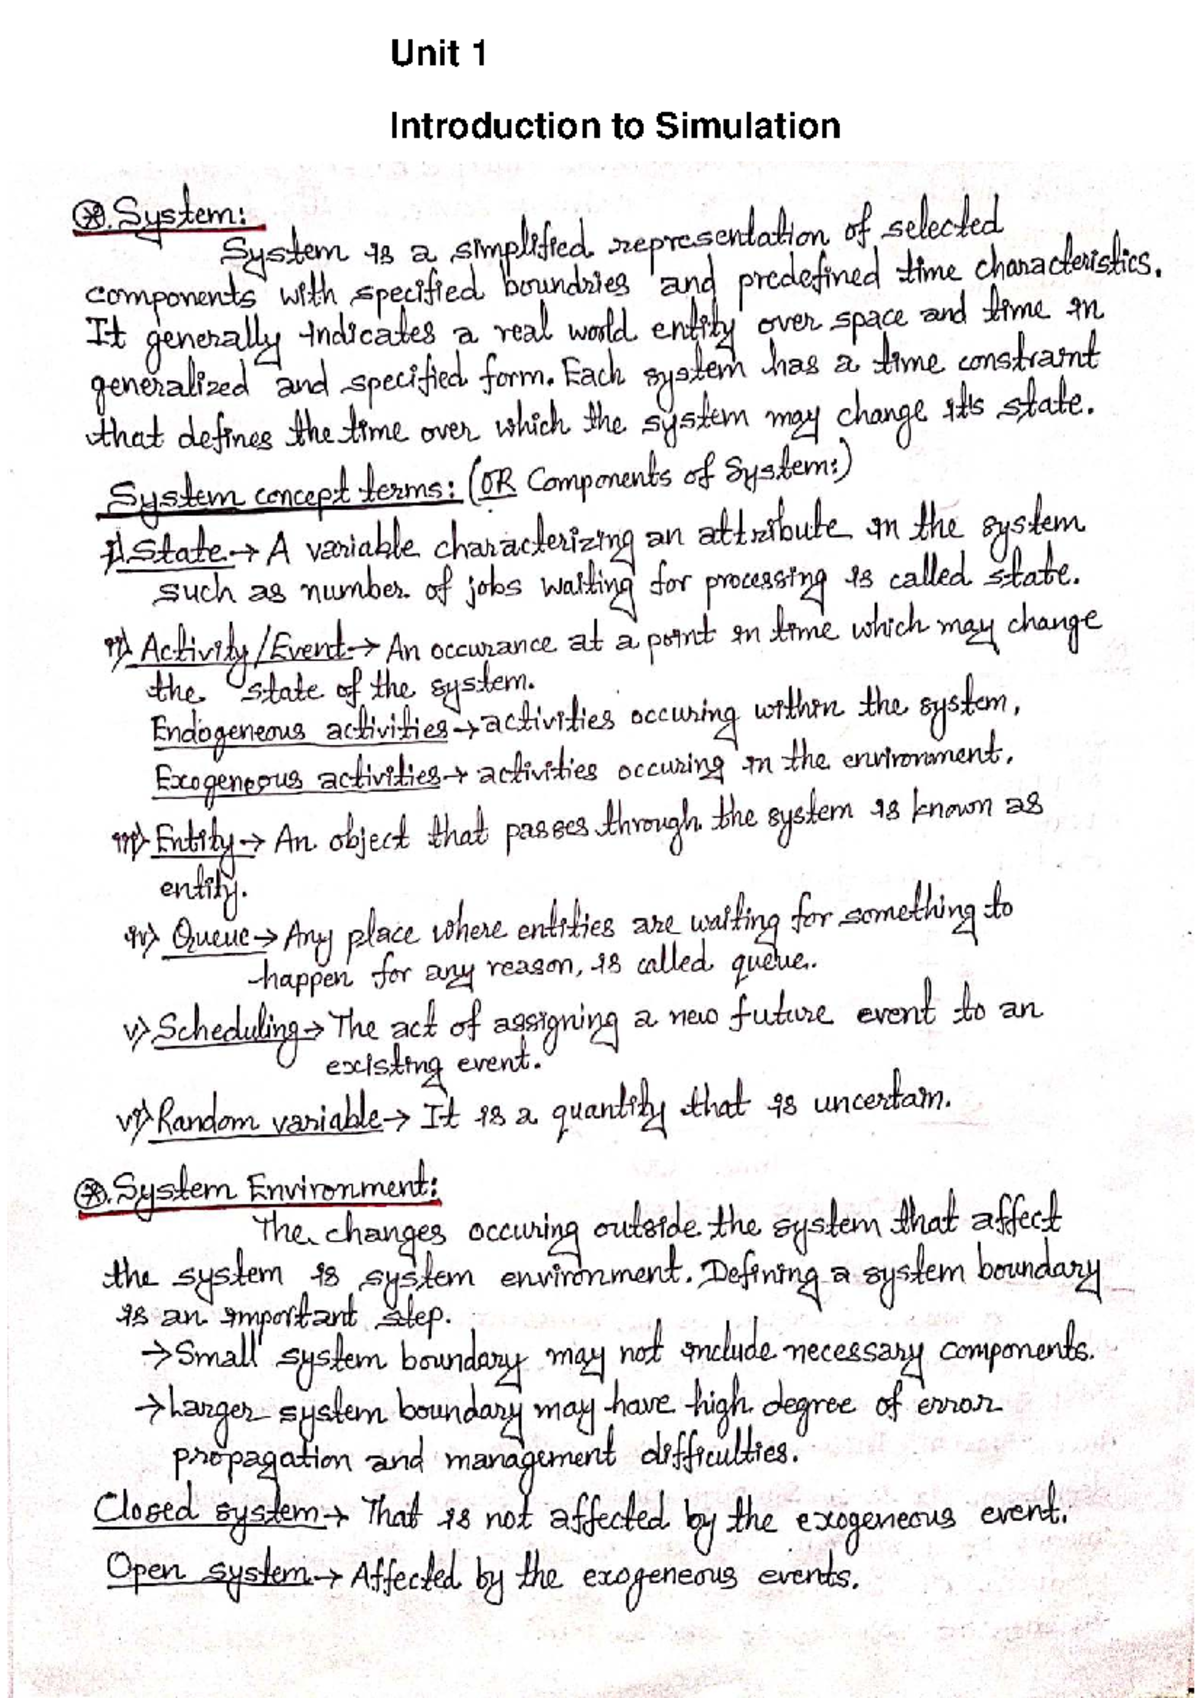 Unit 1
Introduction to Simulation
⊛. System:
System is a simplified representation of selected
components with specified boundries and predefined time characteristics.
It generally indicates a real world entity over space and time in
generalized and specified form. Each system has a time constraint
that defines the time over which the system may change it's state.
System concept terms: (OR Components of System:)
i) State → A variable characterizing an attribute in the system
such as number of jobs waiting for processing is called state.
ii) Activity/Event → An occurance at a point in time which may change
the state of the system.
Endogeneous activities → activities occuring within the system.
Exogeneous activities → activities occuring in the environment.
iii) Entity → An object that passes through the system is known as
entity.
iv) Queue → Any place where entities are waiting for something to
happen for any reason, is called queue.
v) Scheduling → The act of assigning a new future event to an
existing event.
vi) Random variable → It is a quantity that is uncertain.
⊛. System Environment:
The changes occuring outside the system that affect
the system is system environment. Defining a system boundary
is an important step.
→ Small system boundary may not include necessary components.
→ Larger system boundary may have high degree of error
propagation and management difficulties.
Closed system → That is not affected by the exogeneous event.
Open system → Affected by the exogeneous events.